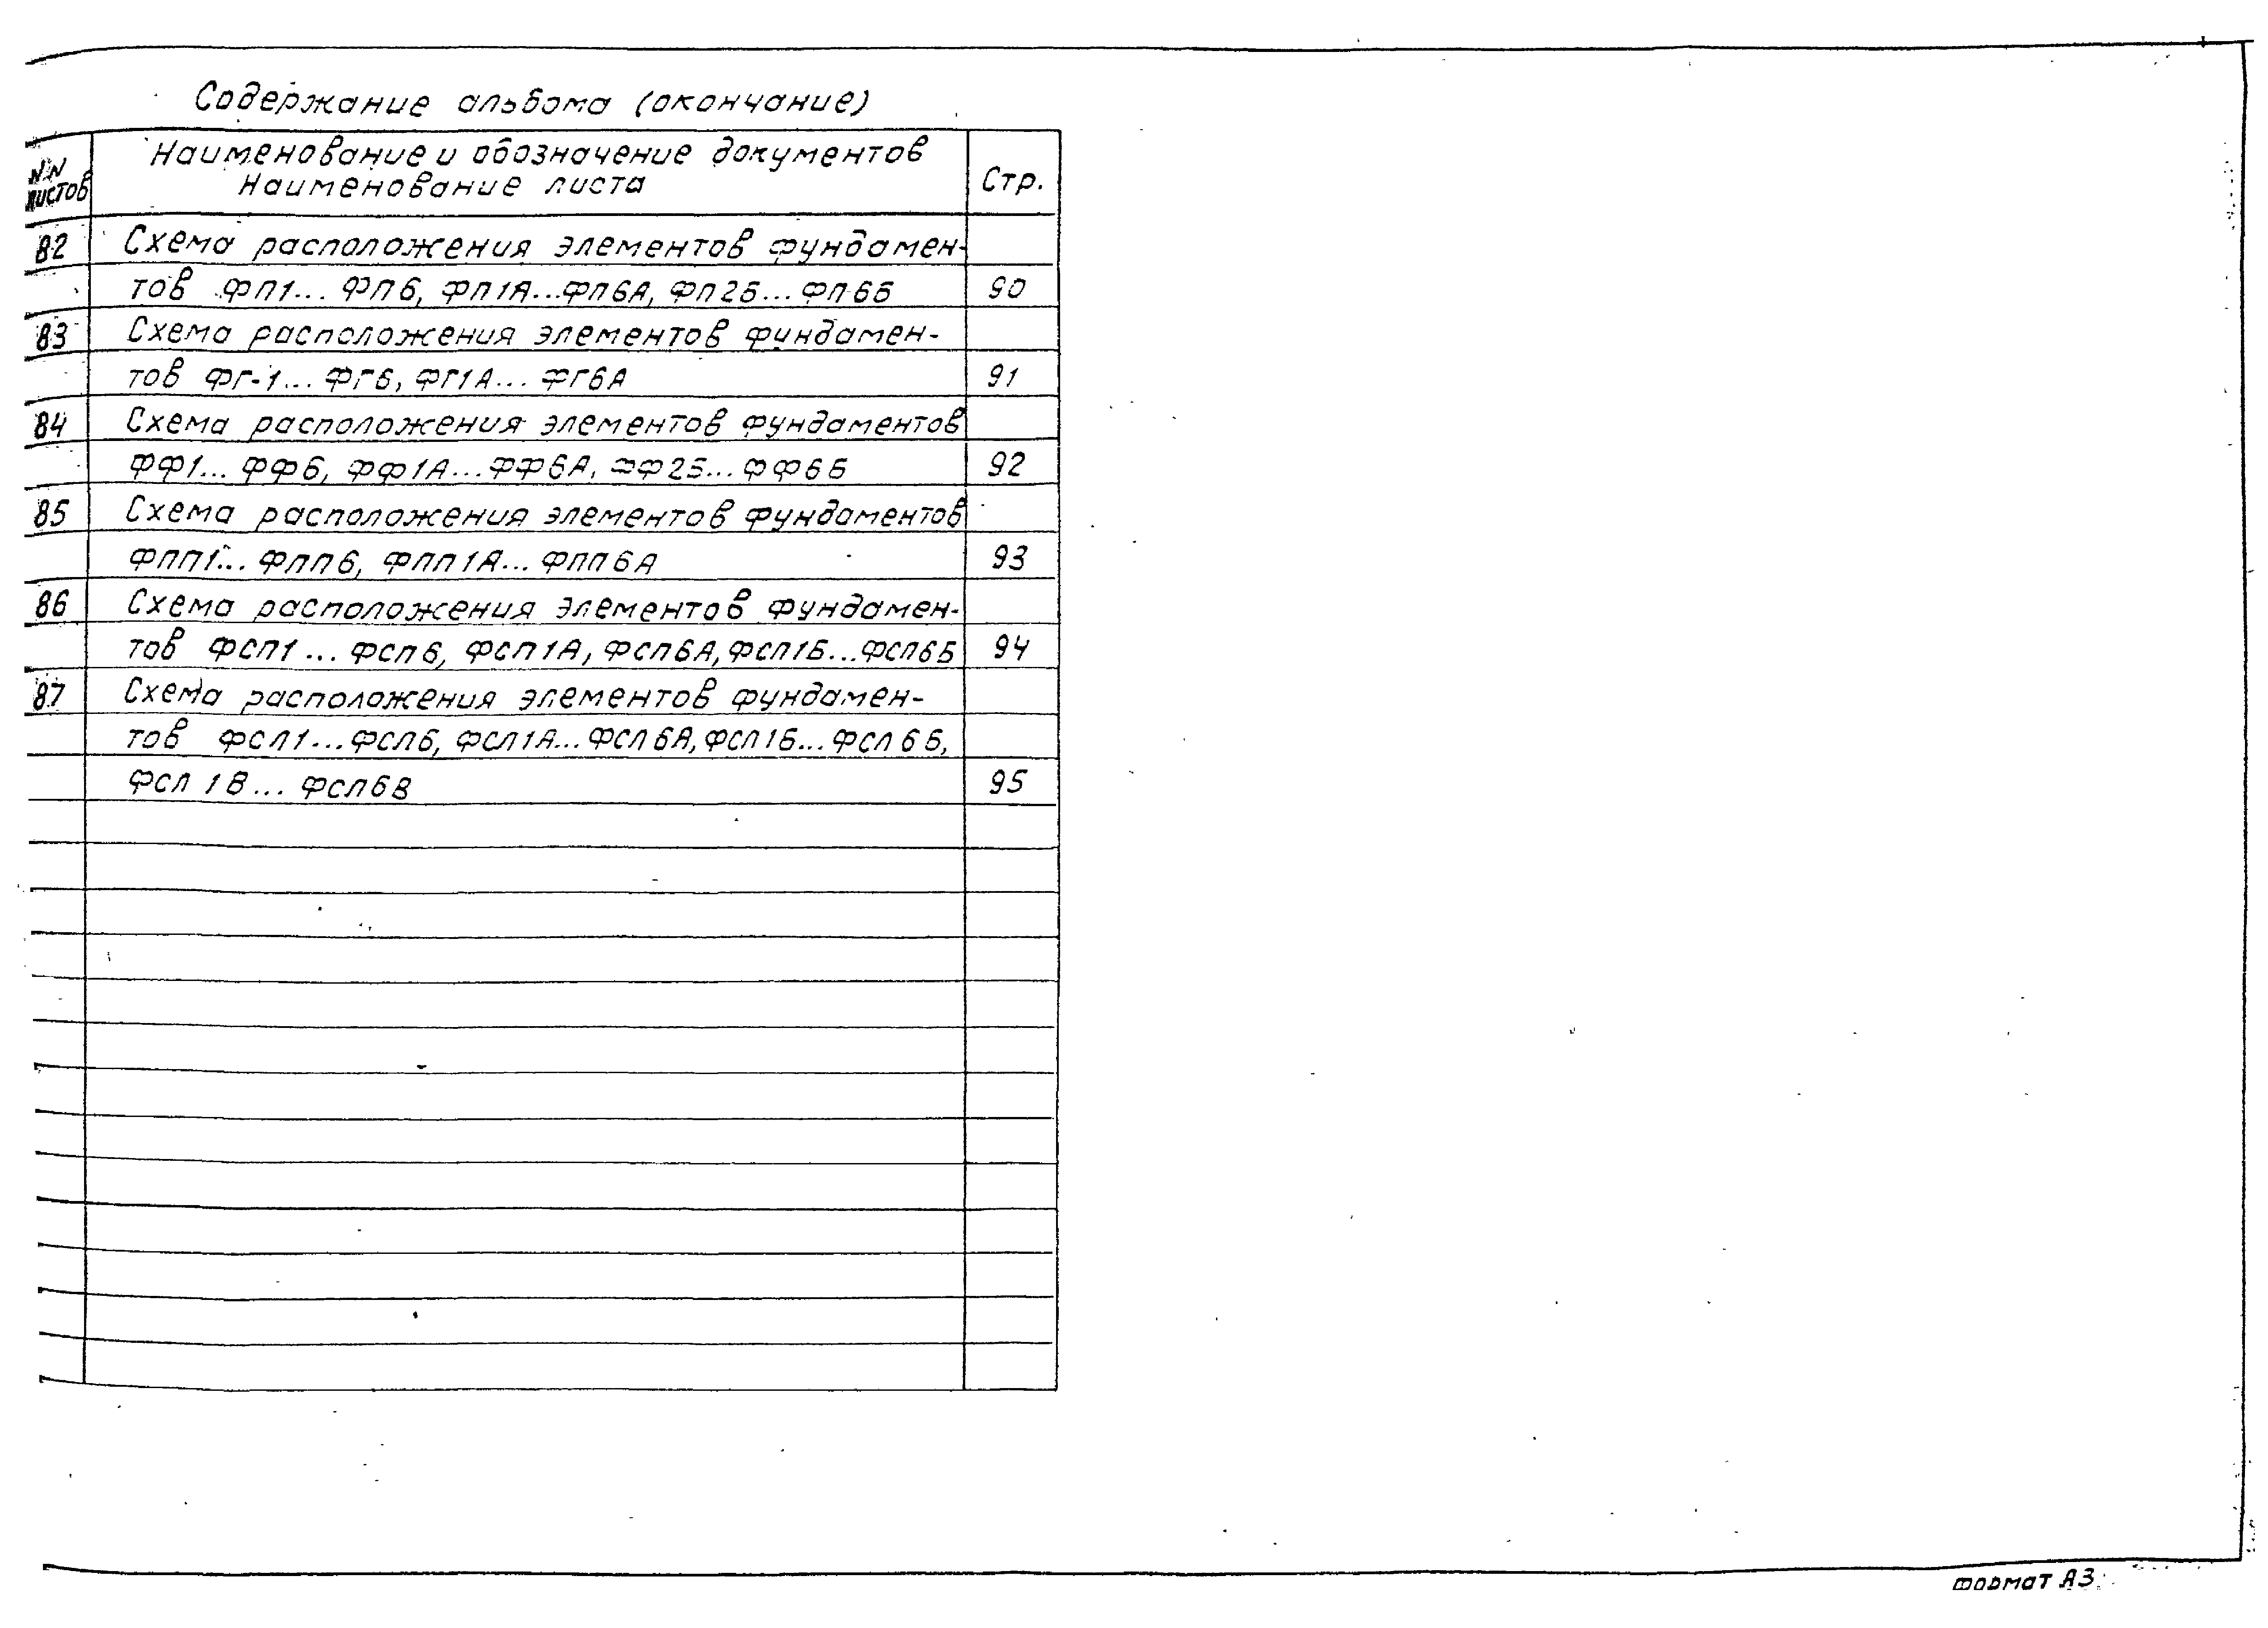 Содержание альбома (окончание)
NN листов
Наименование и обозначение документов
Наименование листа
Стр.
82 Схема расположения элементов фундамен-
тов ФП1... ФП6, ФП1А...ФП6А, ФП2Б... ФП6Б 90
83 Схема расположения элементов фундамен-
тов ФГ-1... ФГ6, ФГ1А... ФГ6А 91
84 Схема расположения элементов фундаментов
ФФ1... ФФ6, ФФ1А...ФФ6А, ФФ2Б... ФФ6Б 92
85 Схема расположения элементов фундаментов
ФПП1... ФПП6, ФПП1А... ФПП6А 93
86 Схема расположения элементов фундамен-
тов ФСП1... ФСП6, ФСП1А, ФСП6А, ФСП1Б...ФСП6Б 94
87 Схема расположения элементов фундамен-
тов ФСЛ1...ФСЛ6, ФСЛ1А...ФСЛ6А, ФСЛ1Б...ФСЛ6Б,
ФСЛ1В... ФСЛ6В 95
Формат А3